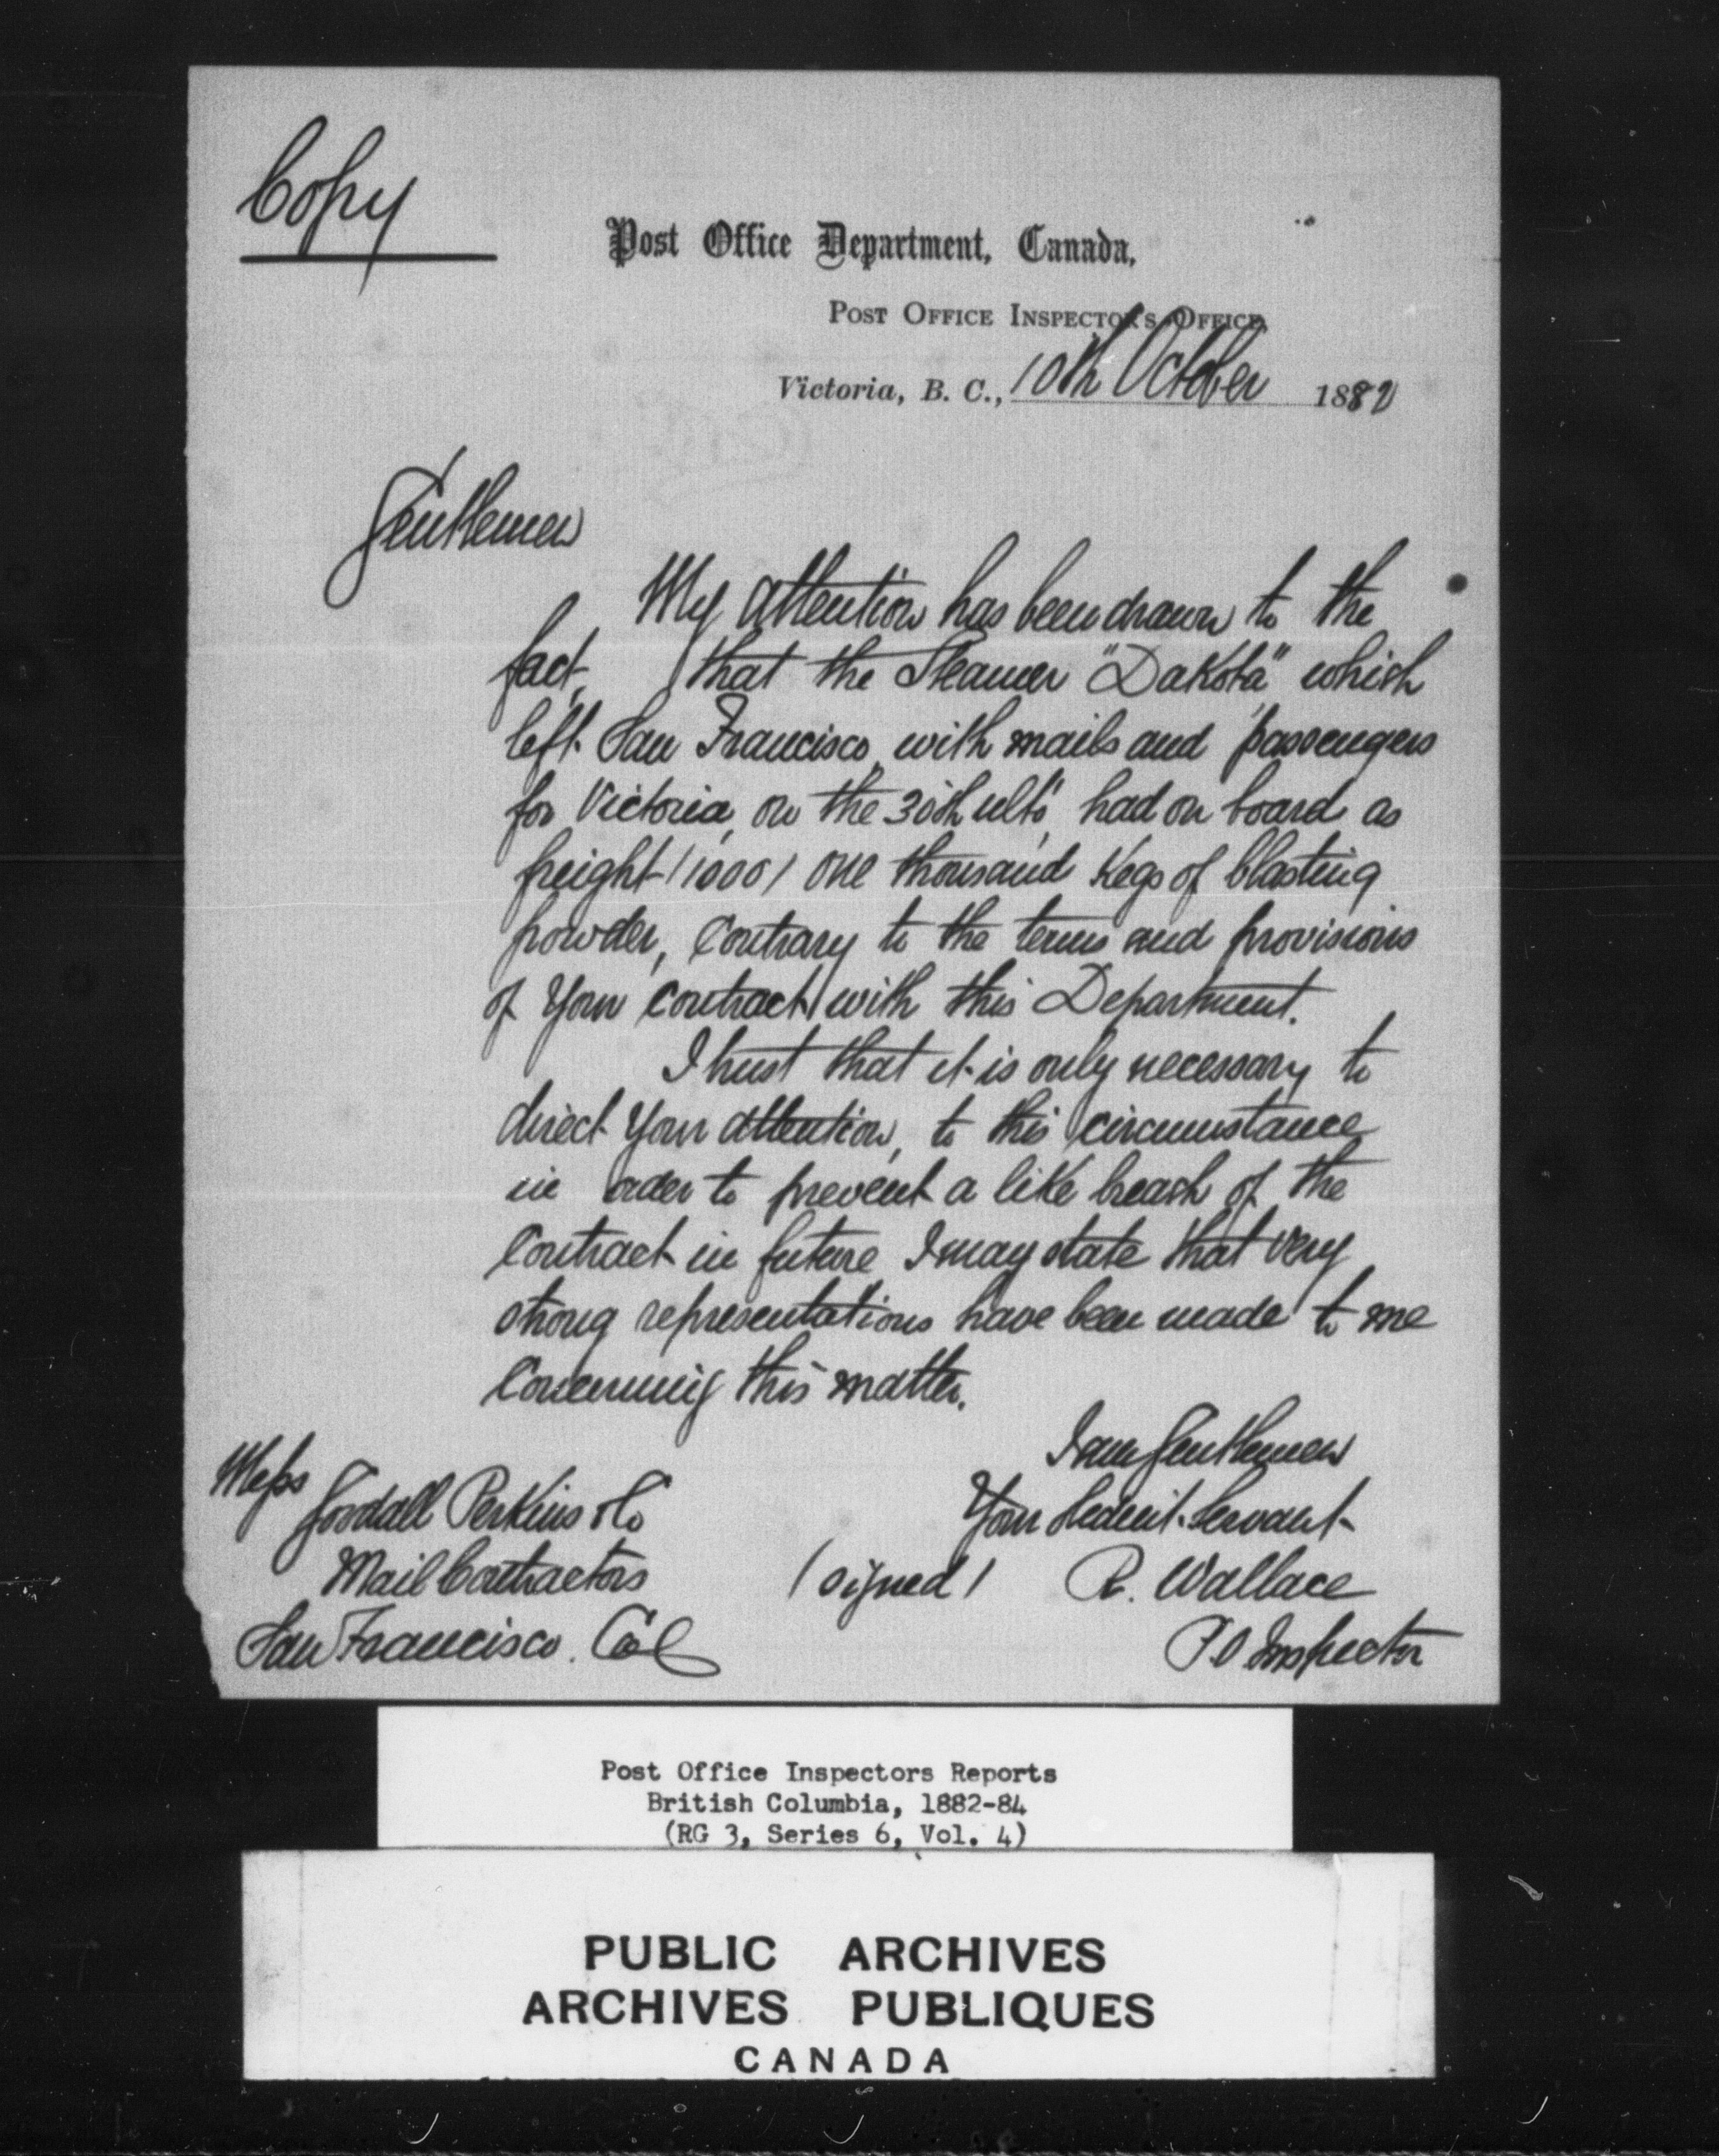 Copy
Post Office Department, Canada,
Post Office Inspector's Office,
Victoria, B. C., 10th October 1882
Gentlemen
My attention has been drawn to the
fact, that the Steamer "Dakota" which
left San Francisco, with mails and passengers
for Victoria, on the 30th ulto, had on board as
freight (1000) one thousand Kegs of blasting
powder, Contrary to the terms and provisions
of Your Contract with this Department.
I trust that it is only necessary to
direct Your attention, to this circumstance
in order to prevent a like breach of the
Contract in future I may state that very
strong representations have been made to me
Concerning this matter.
I am Gentlemen
Your Obedient Servant
(signed) R. Wallace
P.O Inspector
Messs
Goodall Perkins & Co
Mail Contractors
San Francisco. Cal
Post Office Inspectors Reports
British Columbia, 1882-84
(RG 3, Series 6, Vol. 4)
PUBLIC ARCHIVES
ARCHIVES PUBLIQUES
CANADA